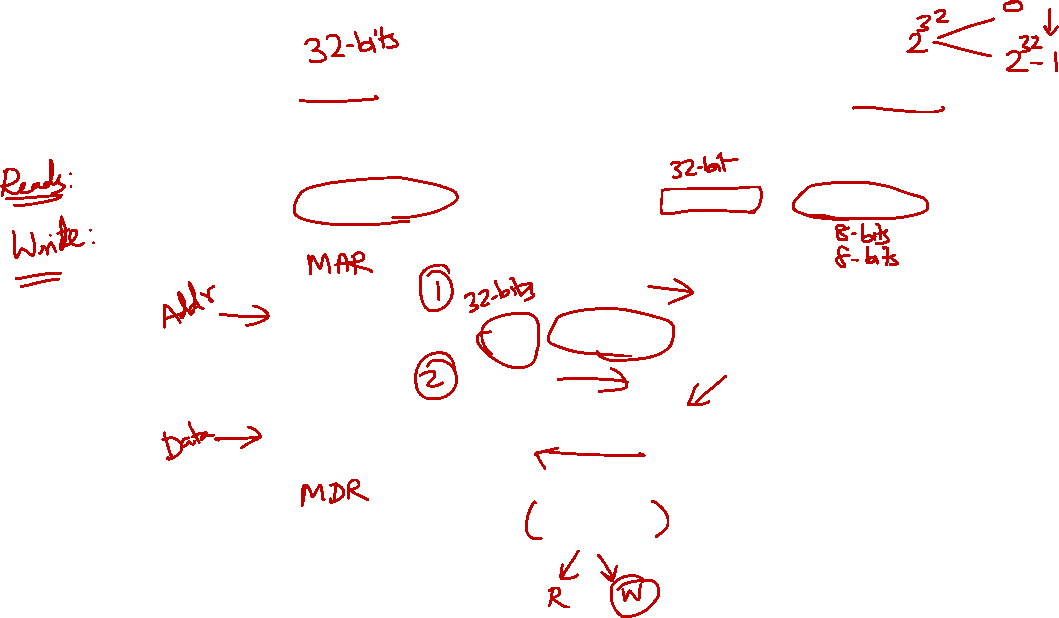 32-bits
2^32
0
2^32-1
Reads:
Write:
32-bit
8-bits
8-bits
MAR
Addr
1
32-bits
2
Data
MDR
( )
R
W